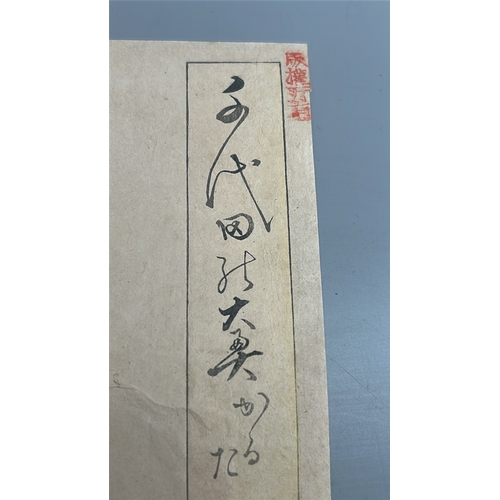 版權所有
千代田の大奥 かるた